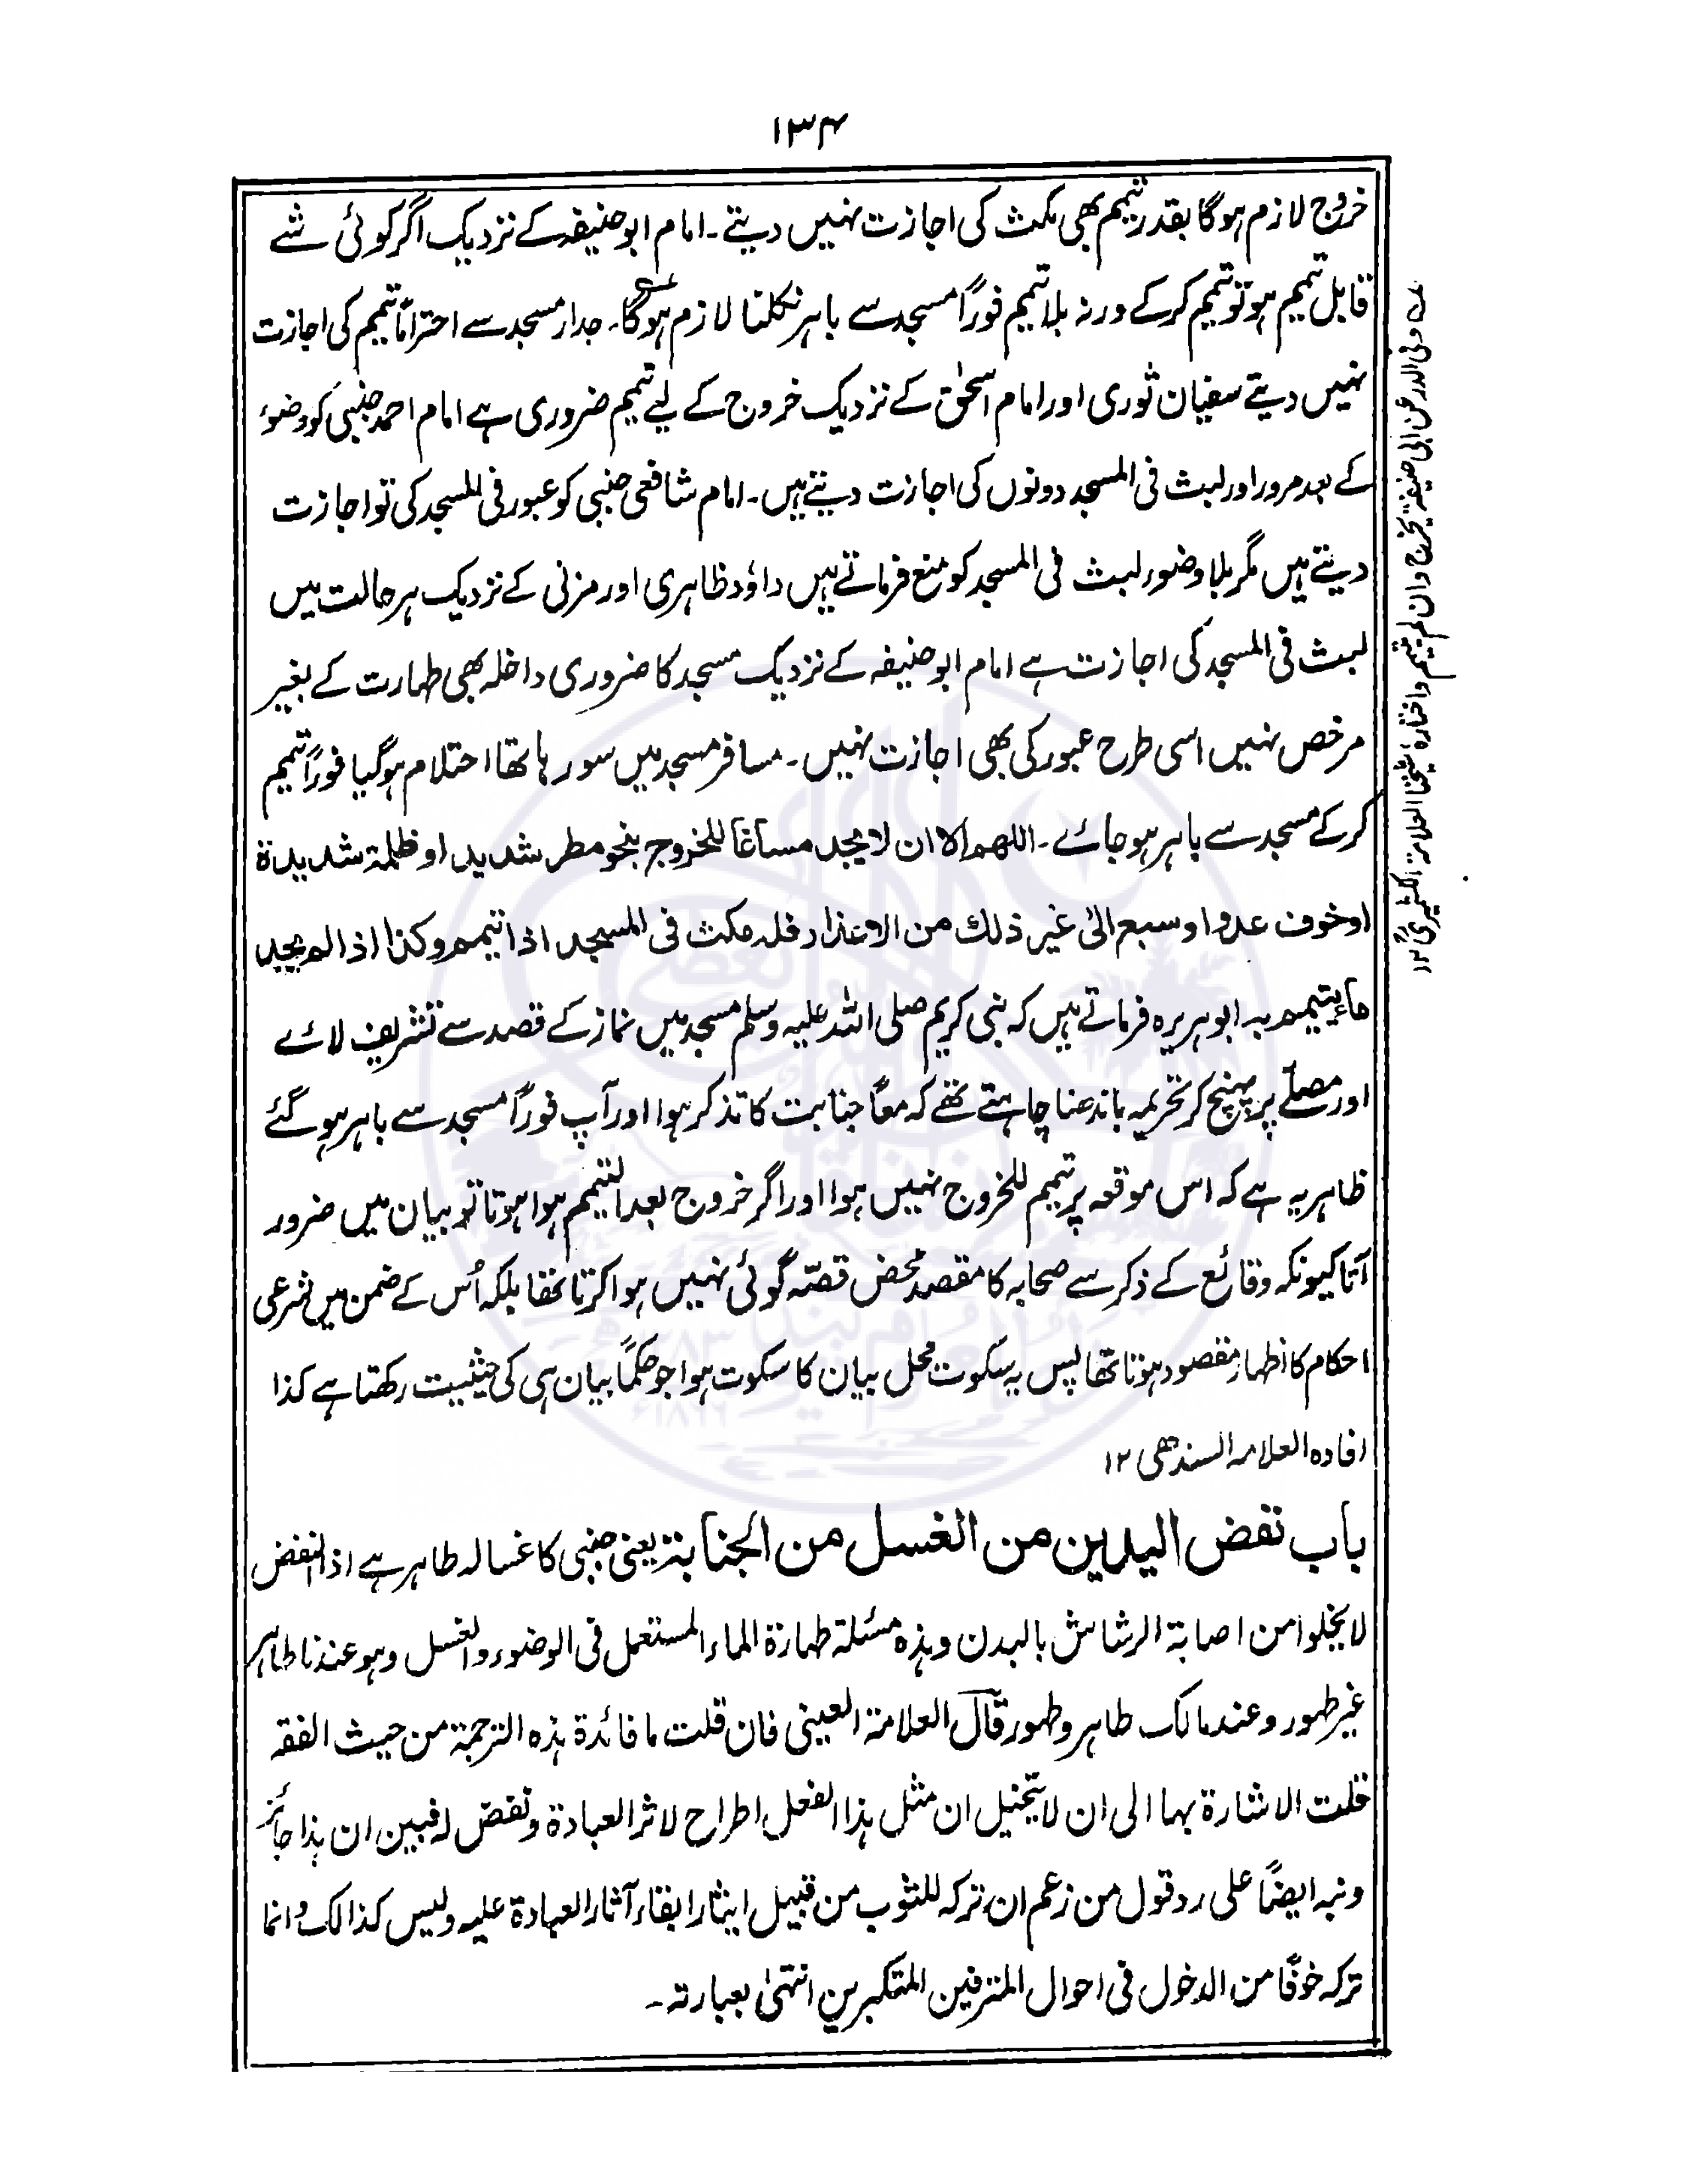 ۱۳۴
خروج لازم ہوگا بقدر تیمم بھی مکث کی اجازت نہیں دیتے۔ امام ابوحنیفہ کے نزدیک اگر کوئی شے
قابل تیمم ہو تو تیمم کرکے ورنہ بلا تیمم فوراً مسجد سے باہر نکلنا لازم ہوگا۔ جدار مسجد سے احتراماً تیمم کی اجازت
نہیں دیتے سفیان ثوری اور امام اسحٰق کے نزدیک خروج کے لیے تیمم ضروری ہے امام احمد جنبی کو وضوء
کے بعد مرور اور لبث فی المسجد دونوں کی اجازت دیتے ہیں۔ امام شافعی جنبی کو عبور فی المسجد کی تو اجازت
دیتے ہیں مگر بلا وضور لبث فی المسجد کو منع فرماتے ہیں داؤد ظاہری اور مزنی کے نزدیک ہر حالت میں
لبث فی المسجد کی اجازت ہے امام ابوحنیفہ کے نزدیک مسجد کا ضروری داخلہ بھی طہارت کے بغیر
مرخص نہیں اسی طرح عبور کی بھی اجازت نہیں۔ مسافر مسجد میں سو رہا تھا احتلام ہوگیا فوراً تیمم
کرکے مسجد سے باہر ہو جائے۔ اللهم الا ان لا یجد مساغا للخروج بنحو مطر شدید او ظلمة شدیدة
او خوف عدو او سبع الیٰ غیر ذلك من الاعذار فله مکث فی المسجد اذا تیمم وکذا اذا لم یجد
ماء یتیمم به ابوہریرہ فرماتے ہیں کہ نبی کریم صلی اللہ علیہ وسلم مسجد میں نماز کے قصد سے تشریف لائے
اور مصلّے پر پہنچ کر تحریمہ باندھنا چاہتے تھے کہ معاً جنابت کا تذکر ہوا اور آپ فوراً مسجد سے باہر ہو گئے
ظاہر یہ ہے کہ اس موقعہ پر تیمم للخروج نہیں ہوا اور اگر خروج بعد التیمم ہوا ہوتا تو بیان میں ضرور
آتا کیونکہ وقائع کے ذکر سے صحابہ کا مقصد محض قصّہ گوئی نہیں ہوا کرتا تھا بلکہ اُس کے ضمن میں شرعی
احکام کا اظہار مقصود ہوتا تھا پس یہ سکوت محل بیان کا سکوت ہوا جو حکماً بیان ہی کی حیثیت رکھتا ہے کذا
افادہ العلامہ السندھی ۱۲
باب نفض الیدین من الغسل من الجنابة یعنی جنبی کا غسالہ طاہر ہے اذ النفض
لا یخلوا من اصابة الرشاش بالبدن وہذہ مسئلة طہارة الماء المستعمل فی الوضوء والغسل وہو عندنا طاہر
غیر طہور وعند مالک طاہر وطہور قال العلامة العینی فان قلت ما فائدة ہذہ الترجمة من حیث الفقہ
قلت الاشارة بہا الی ان لا یتخیل ان مثل ہذا الفعل اطراح لاثر العبادة ونفض لہ فبین ان ہذا جائز
ونبہ ایضاً علی رد قول من زعم ان ترکہ للثوب من قبیل ایثار ابقاء آثار العبادة علیہ ولیس کذالک وانما
ترکہ خوفًا من الدخول فی احوال المترفین المتکبرین انتہیٰ بعبارتہ۔
وفی الدر عن ابی حنیفة یخرج وان لم یتیمم واختارہ شیخنا العلامة الکشمیریؒ ۱۲